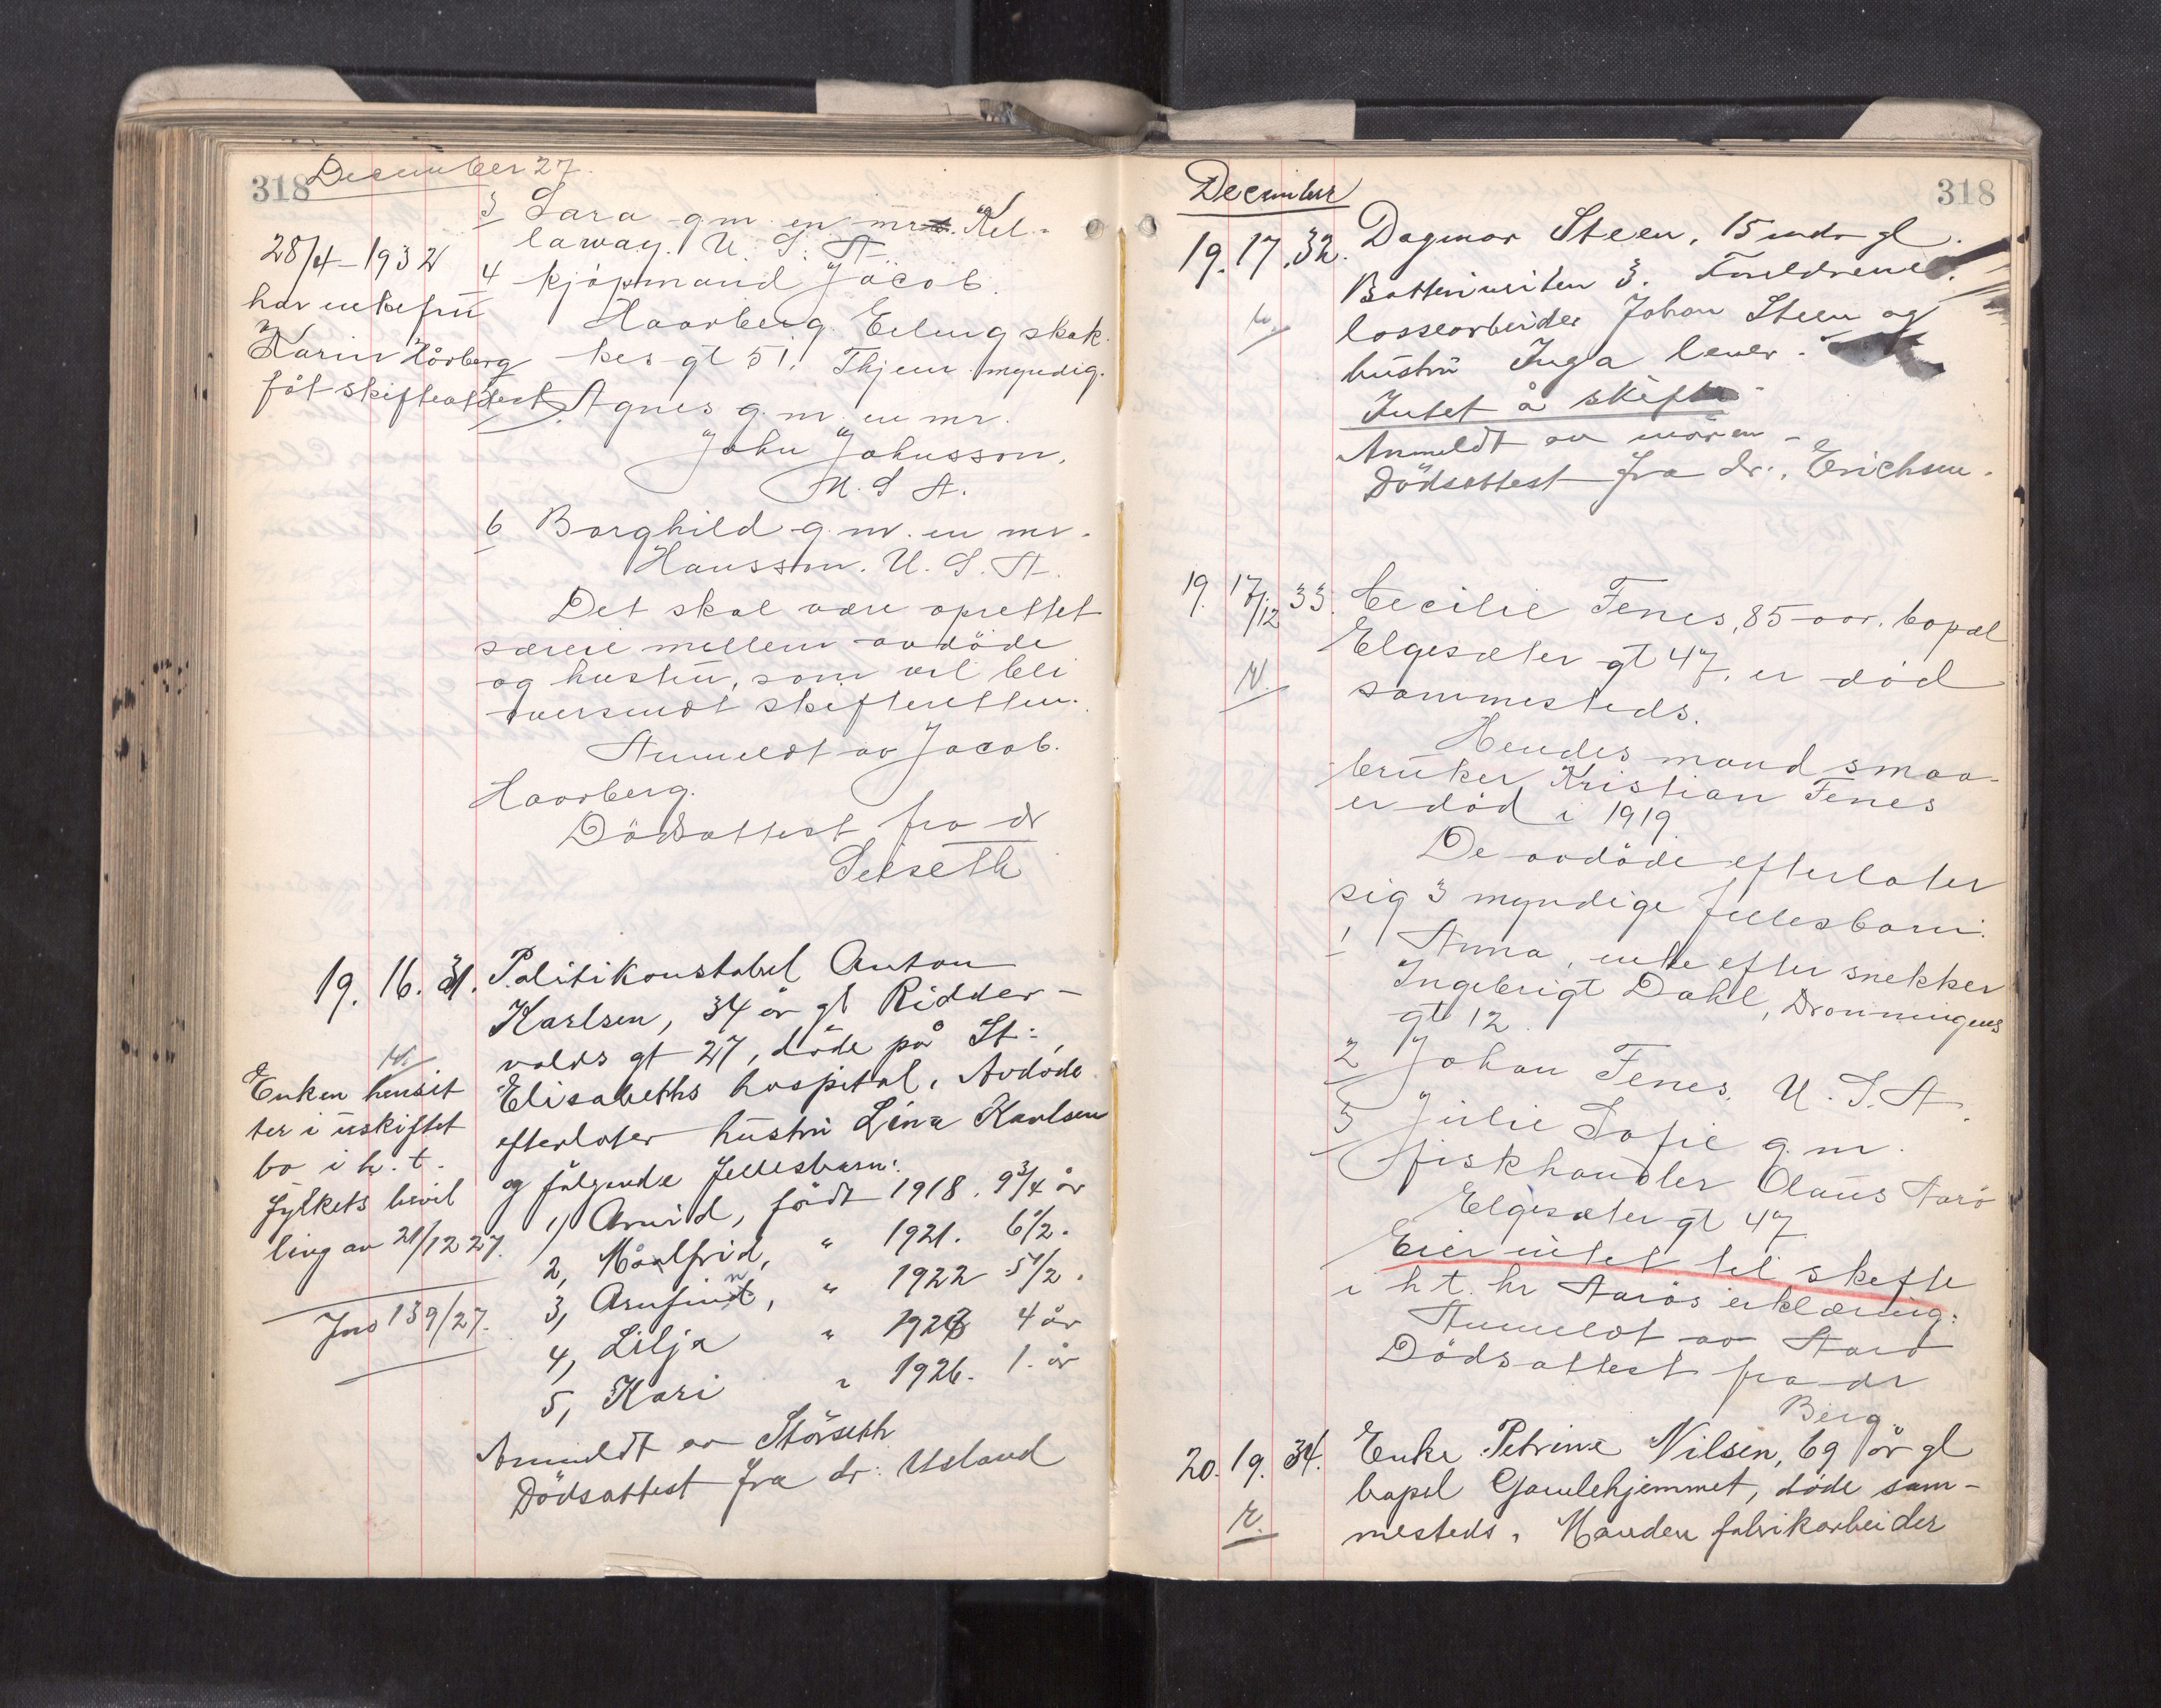 318 December 27.
3 Sara g.m. en mr. Kel-
laway. U. S. A.
4 kjøpmand Jacob.
Haarberg. Erling skak-
kes gt 51. Thjem. myndig.
5. Agnes g. m. en mr.
John Johnsson,
U. S. A.
6 Borghild g. m. en mr.
Hansson. U. S. A.
Det skal være oprettet
særeie mellem avdöde
og hustru, som vil bli
oversendt skifteretten.
Anmeldt av Jacob.
Haarberg.
Dödsattest fra dr
Seiseth
28/4-1932
har enkefru
Karin Hårberg
fåt skifteattest
19. 16. 31. Politikonstabel Anton
Karlsen, 34 år gl Ridder-
volds gt 27, döde på St.
Elisabeths hospital. Avdöde
efterlater hustru Lina Karlsen
og fölgende fellesbarn:
1, Arvid, födt 1918. 9 3/4 år
2, Målfrid, " 1921. 6 1/2.
3, Arnfinn, " 1922 5 1/2.
4, Lilja " 1923 4 år
5, Kari " 1926. 1. år
Anmeldt av Störseth
Dödsattest fra dr. Usland
N.
Enken hensit
ter i uskiftet
bo i h. t.
fylkets bevil
ling av 21/12 27.
Jno 139/27.
December 318
19. 17. 32. Dagmar Steen, 15 mdr gl.
Batteriveiten 3. Foreldrene
lossearbeider Johan Steen og
hustru Inga lever.
Intet å skifte
Anmeldt av moren -
Dödsattest fra dr. Erichsen.
19. 17/12 33. Cecilie Fenes, 85 aar. bopæl
Elgesæter gt 47, er död
N
sammesteds.
Hendes mand smaa-
bruker Kristian Fenes
er död i 1919.
De avdöde efterlater
sig 3 myndige fellesbarn:
1 Anna, enke efter snekker
Ingebrigt Dahl, Dronningens
gt 12.
2 Johan Fenes. U. S. A.
3 Julie Sofie g. m.
fiskhandler Olaus Aarö
Elgesæter gt 47
Eier intet til skifte
i h. t. hr Aarös erklæring.
Anmeldt av Aarö
Dödsattest fra dr
Berg.
20. 19. 34. Enke Petrine Nilsen, 69 år gl
bopel Gamlehjemmet, döde sam-
mesteds. Manden fabrikarbeider